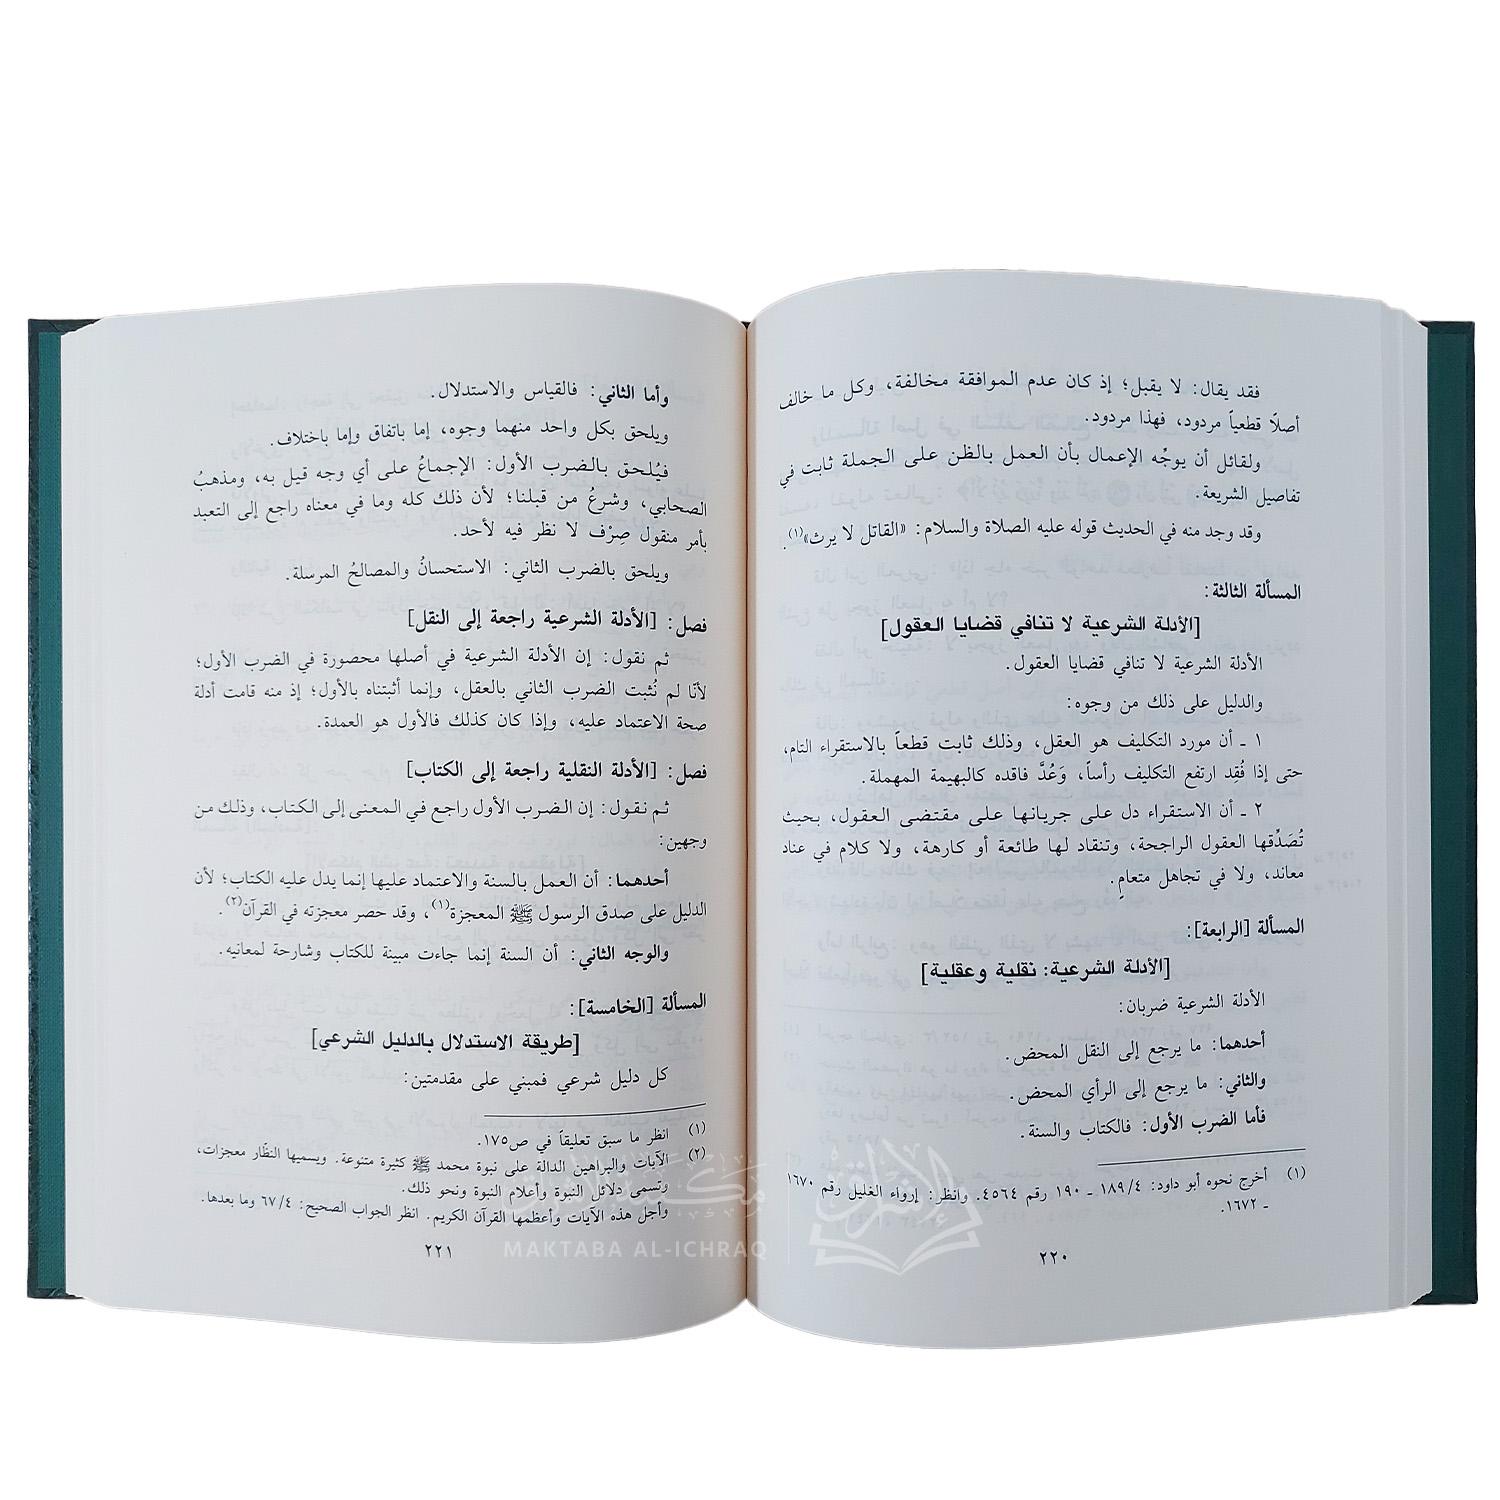 فقد يقال: لا يقبل؛ إذ كان عدم الموافقة مخالفة، وكل ما خالف
أصلًا قطعياً مردود، فهذا مردود.
ولقائل أن يوجّه الإعمال بأن العمل بالظن على الجملة ثابت في
تفاصيل الشريعة.
وقد وجد منه في الحديث قوله عليه الصلاة والسلام: «القاتل لا يرث»(١).
المسألة الثالثة:
[الأدلة الشرعية لا تنافي قضايا العقول]
الأدلة الشرعية لا تنافي قضايا العقول.
والدليل على ذلك من وجوه:
١ ـ أن مورد التكليف هو العقل، وذلك ثابت قطعاً بالاستقراء التام،
حتى إذا فُقِد ارتفع التكليف رأساً، وَعُدَّ فاقده كالبهيمة المهملة.
٢ ـ أن الاستقراء دل على جريانها على مقتضى العقول، بحيث
تُصَدِّقها العقول الراجحة، وتنقاد لها طائعة أو كارهة، ولا كلام في عناد
معاند، ولا في تجاهل متعامٍ.
المسألة [الرابعة]:
[الأدلة الشرعية: نقلية وعقلية]
الأدلة الشرعية ضربان:
أحدهما: ما يرجع إلى النقل المحض.
والثاني: ما يرجع إلى الرأي المحض.
فأما الضرب الأول: فالكتاب والسنة.
(١) أخرج نحوه أبو داود: ٤/ ١٨٩ ـ ١٩٠ رقم ٤٥٦٤. وانظر: إرواء الغليل رقم ١٦٧٠
ـ ١٦٧٢.
٢٢٠
وأما الثاني: فالقياس والاستدلال.
ويلحق بكل واحد منهما وجوه، إما باتفاق وإما باختلاف.
فيُلحق بالضرب الأول: الإجماعُ على أي وجه قيل به، ومذهبُ
الصحابي، وشرعُ من قبلنا؛ لأن ذلك كله وما في معناه راجع إلى التعبد
بأمر منقول صِرْف لا نظر فيه لأحد.
ويلحق بالضرب الثاني: الاستحسانُ والمصالحُ المرسلة.
فصل: [الأدلة الشرعية راجعة إلى النقل]
ثم نقول: إن الأدلة الشرعية في أصلها محصورة في الضرب الأول؛
لأنّا لم نُثبت الضرب الثاني بالعقل، وإنما أثبتناه بالأول؛ إذ منه قامت أدلة
صحة الاعتماد عليه، وإذا كان كذلك فالأول هو العمدة.
فصل: [الأدلة النقلية راجعة إلى الكتاب]
ثم نقول: إن الضرب الأول راجع في المعنى إلى الكتاب، وذلك من
وجهين:
أحدهما: أن العمل بالسنة والاعتماد عليها إنما يدل عليه الكتاب؛ لأن
الدليل على صدق الرسول ﷺ المعجزة(١)، وقد حصر معجزته في القرآن(٢).
والوجه الثاني: أن السنة إنما جاءت مبينة للكتاب وشارحة لمعانيه.
المسألة [الخامسة]:
[طريقة الاستدلال بالدليل الشرعي]
كل دليل شرعي فمبني على مقدمتين:
(١) انظر ما سبق تعليقاً في ص١٧٥.
(٢) الآيات والبراهين الدالة على نبوة محمد ﷺ كثيرة متنوعة. ويسميها النظّار معجزات،
وتسمى دلائل النبوة وأعلام النبوة ونحو ذلك.
وأجل هذه الآيات وأعظمها القرآن الكريم. انظر الجواب الصحيح: ٤/ ٦٧ وما بعدها.
٢٢١
مكتبة الإشراق
MAKTABA AL-ICHRAQ
الإشراق